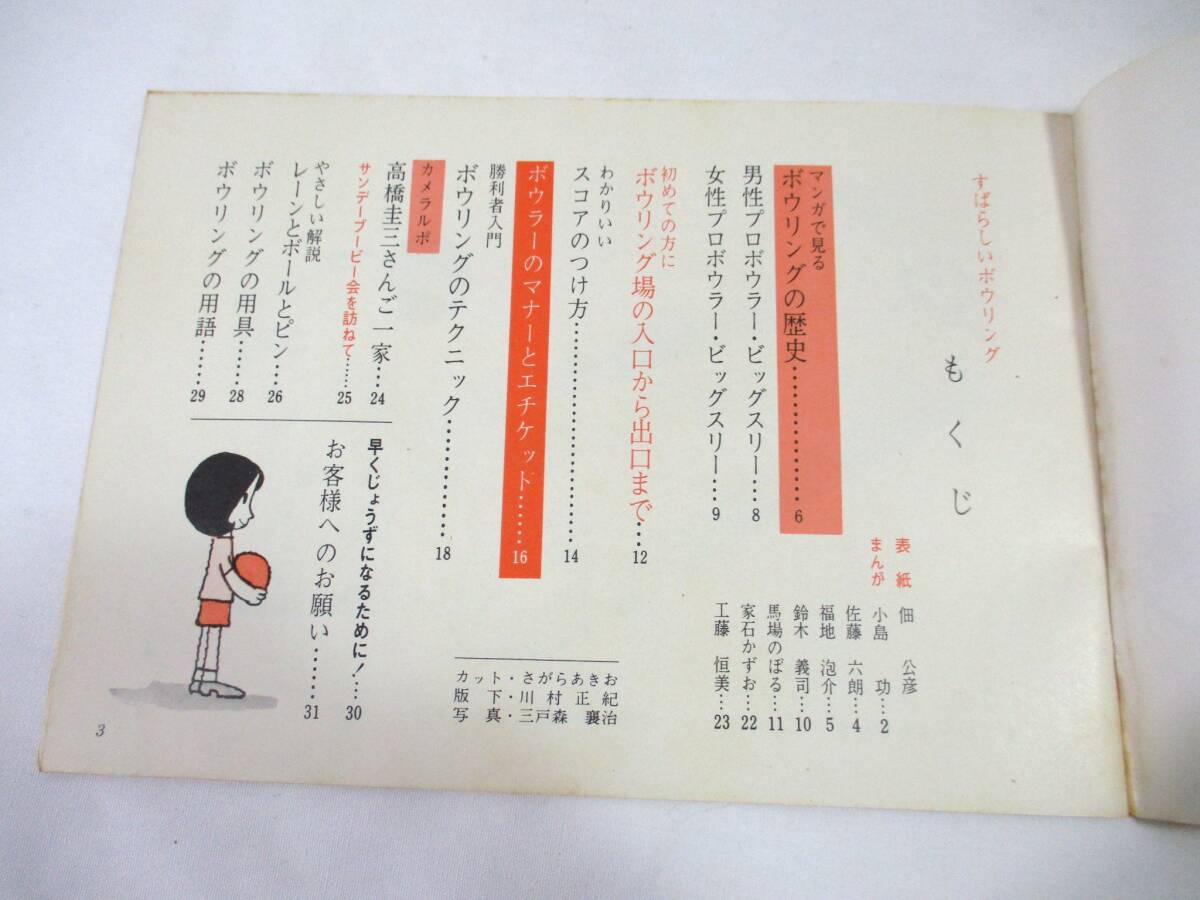 すばらしいボウリング
もくじ
マンガで見る
ボウリングの歴史……………6
男性プロボウラー・ビッグスリー…8
女性プロボウラー・ビッグスリー…9
初めての方に
ボウリング場の入口から出口まで…12
わかりいい
スコアのつけ方……………………14
ボウラーのマナーとエチケット……16
勝利者入門
ボウリングのテクニック…………18
カメラルポ
高橋圭三さんご一家…24
サンデーブービー会を訪ねて……25
やさしい解説
レーンとボールとピン…26
ボウリングの用具……28
ボウリングの用語……29
表紙 佃 公彦
まんが 小島 功…2
佐藤 六朗…4
福地 泡介…5
鈴木 義司…10
馬場のぼる…11
家石かずお…22
工藤 恒美…23
カット・さがらあきお
版下・川村正紀
写真・三戸森襄治
早くじょうずになるために!…30
お客様へのお願い……31
3